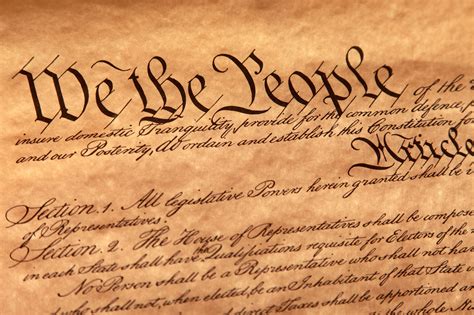 We the People of the
insure domestic Tranquility, provide for the common defence,
and our Posterity, do ordain and establish this Constitution for
Article
Section. 1. All legislative Powers herein granted shall be
of Representatives.
Section. 2. The House of Representatives shall be compos
in each State shall have Qualifications requisite for Electors of the
No Person shall be a Representative who shall not ha
who shall not, when elected, be an Inhabitant of that State
direct Taxes shall be apportioned
the whole